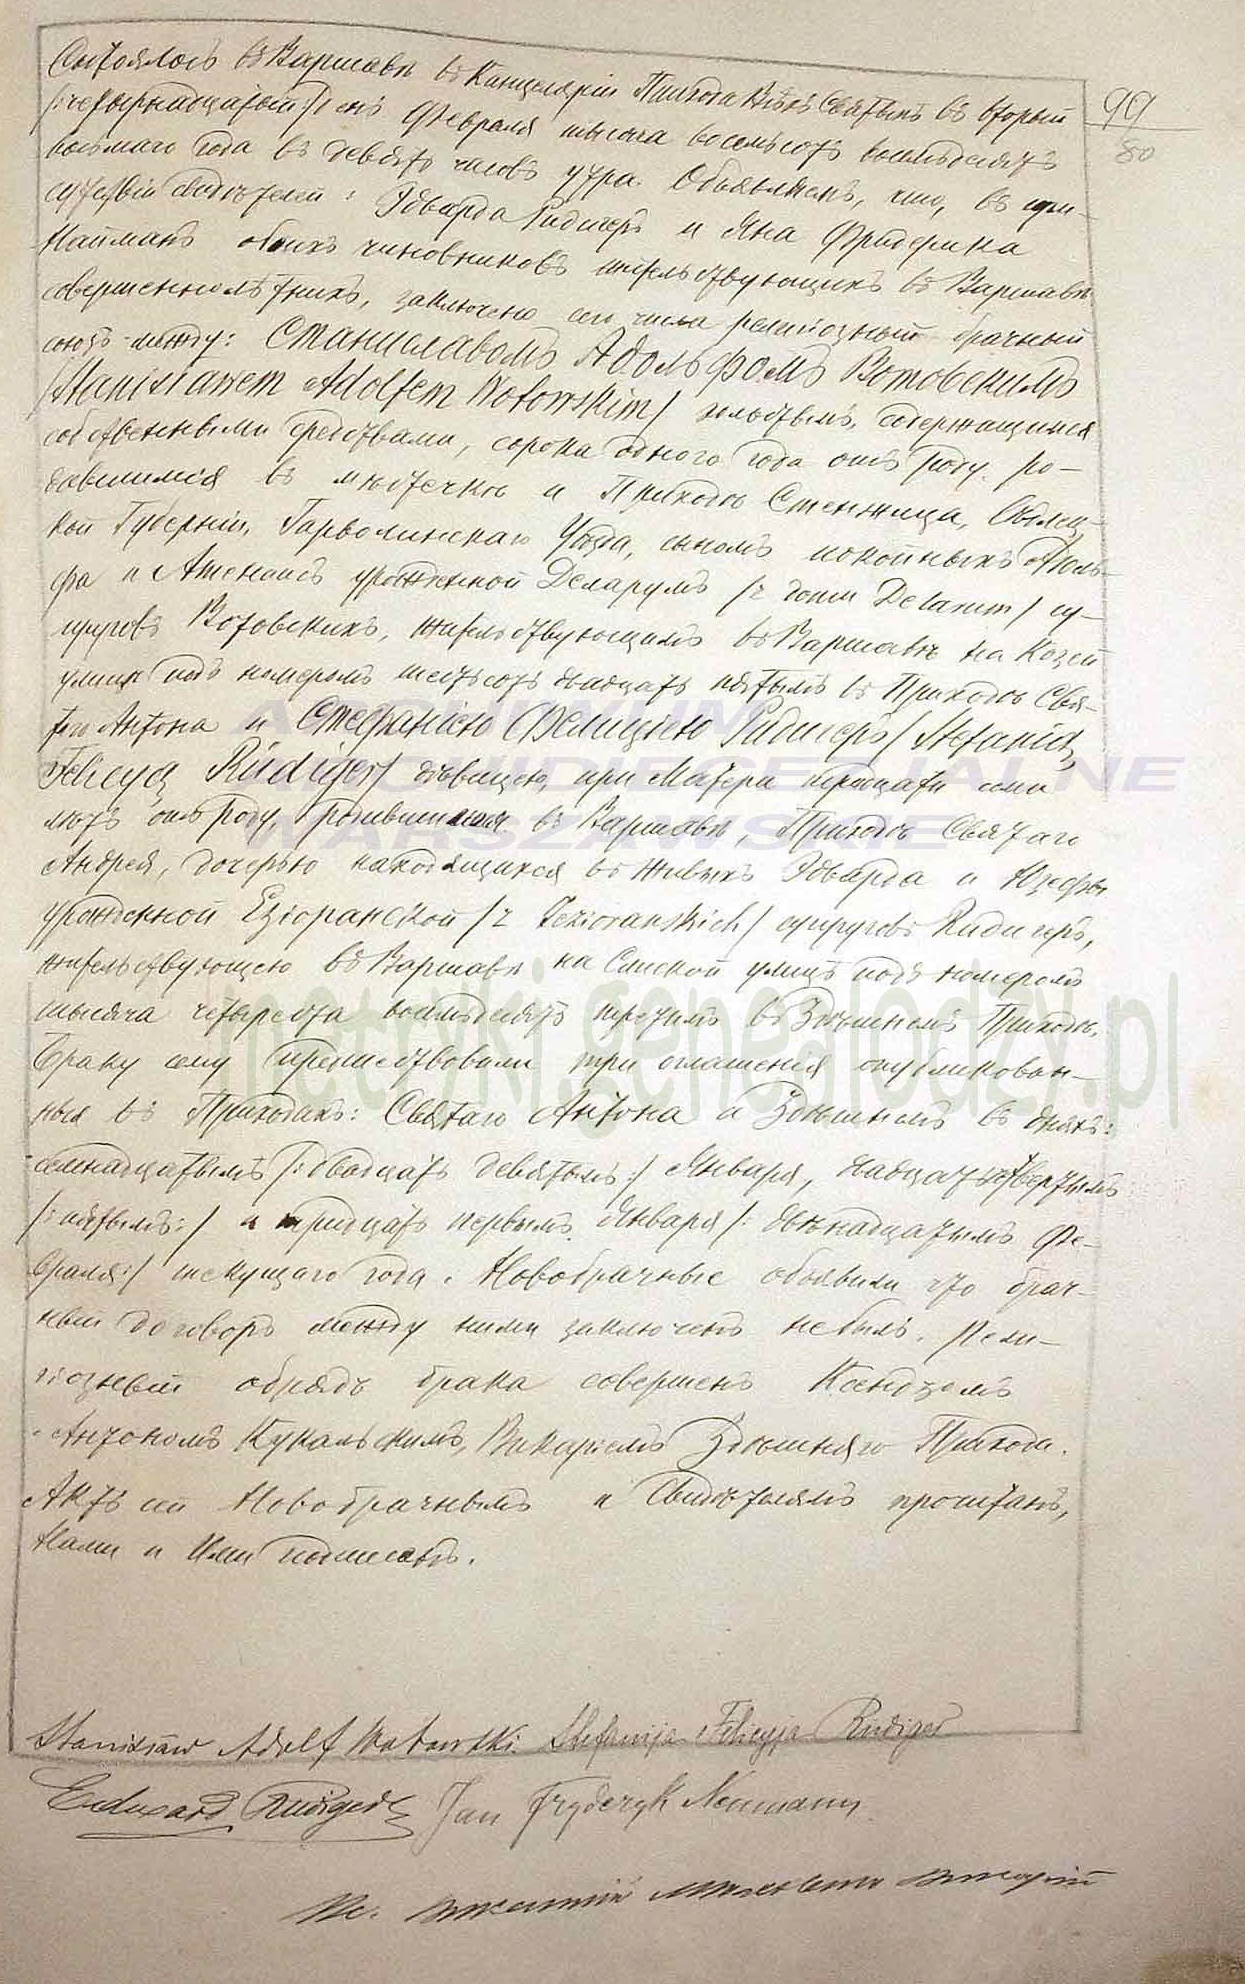 Состоялось въ Варшавѣ въ Канцеляріи Прихода Всѣхъ Святыхъ въ вторый
99
80
/:четырнадцатый:/ день Февраля тысяча восемьсотъ восемьдесятъ
восьмаго года въ девять часовъ утра. Объявляемъ, что, въ при-
сутствіи свидѣтелей: Эдварда Ридигеръ и Яна Фридерика
Найманъ обоихъ чиновниковъ жительствующихъ въ Варшавѣ
совершеннолѣтнихъ, заключено сего числа религіозный брачный
союзъ между: Станиславомъ Адольфомъ Вотовскимъ
/Stanisławem Adolfem Wotowskim/ холостымъ, содержащимся
собственными средствами, сорока одного года отъ роду, ро-
дившимся въ мѣстечкѣ и Приходѣ Стенжица, Сѣдлец-
кой Губерніи, Гарволинскаго Уѣзда, сыномъ покойныхъ Адоль-
фа и Атенаисъ урожденной Деларумъ /z domu Delarum/ су-
пруговъ Вотовскихъ, жительствующимъ въ Варшавѣ на Козей
улицѣ подъ номеромъ шестьсотъ двадцать пятымъ въ Приходѣ Свя-
таго Антона и Стефаніею Фелиціею Ридигеръ /Stefanią
Felicyą Rüdiger/ дѣвицею, при Матери тридцати семи
лѣтъ отъ роду, родившеюся въ Варшавѣ, Приходѣ Святаго
Андрея, дочерью находящихся въ живыхъ Эдварда и Юзефы
урожденной Езіоранской /z Jezioranskich/ супруговъ Ридигеръ,
жительствующею въ Варшавѣ на улицѣ подъ номеромъ
тысяча четыреста восемьдесятъ третимъ въ Здѣшнемъ Приходѣ.
Браку сему предшествовали три оглашенія опубликован-
ныя въ Приходахъ: Святаго Антона и Здѣшнемъ въ дняхъ:
семнадцатымъ /:двадцать девятымъ:/ Января, двадцать четвертымъ
/:пятымъ:/ и тридцать первымъ Января /: двѣнадцатымъ Фе-
враля:/ текущаго года. Новобрачные объявили что брач-
ный договоръ между ними заключенъ небылъ. Рели-
гіозный обрядъ брака совершенъ Ксендзомъ
Антономъ Викаріемъ Здѣшняго Прихода.
Актъ сей Новобрачнымъ и Свидѣтелямъ прочитанъ,
Нами и Ими подписанъ.
Stanisław Adolf Wotowski. Stefanija Felicyja Rüdiger
Edward Rüdiger Jan Fryderyk Neumann
Кс.
ARCHIWUM
ARCHIDIECEZJALNE
WARSZAWSKIE
metryki.genealodzy.pl